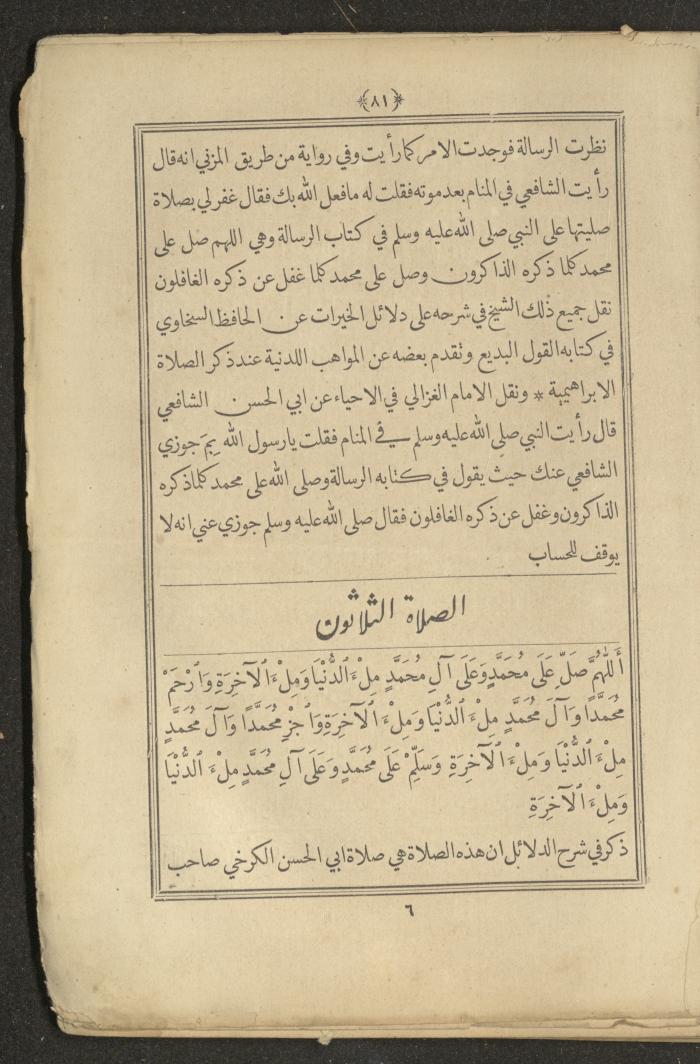 ﴿٨١﴾
نظرت الرسالة فوجدت الامر كما رأيت وفي رواية من طريق المزني انه قال
رأيت الشافعي في المنام بعد موته فقلت له ما فعل الله بك فقال غفر لي بصلاة
صليتها على النبي صلى الله عليه وسلم في كتاب الرسالة وهي اللهم صل على
محمد كلما ذكره الذاكرون وصل على محمد كلما غفل عن ذكره الغافلون
نقل جميع ذلك الشيخ في شرحه على دلائل الخيرات عن الحافظ السخاوي
في كتابه القول البديع وتقدم بعضه عن المواهب اللدنية عند ذكر الصلاة
الابراهيمية * ونقل الامام الغزالي في الاحياء عن ابي الحسن الشافعي
قال رأيت النبي صلى الله عليه وسلم في المنام فقلت يا رسول الله بِمَ جوزي
الشافعي عنك حيث يقول في كتابه الرسالة وصلى الله على محمد كلما ذكره
الذاكرون وغفل عن ذكره الغافلون فقال صلى الله عليه وسلم جوزي عني انه لا
يوقف للحساب
الصلاة الثلاثون
أَللّٰهُمَّ صَلِّ عَلَى مُحَمَّدٍ وَعَلَى آلِ مُحَمَّدٍ مِلْءَ ٱلدُّنْيَا وَمِلْءَ ٱلْآخِرَةِ وَٱرْحَمْ
مُحَمَّدًا وَآلَ مُحَمَّدٍ مِلْءَ ٱلدُّنْيَا وَمِلْءَ ٱلْآخِرَةِ وَٱجْزِ مُحَمَّدًا وَآلَ مُحَمَّدٍ
مِلْءَ ٱلدُّنْيَا وَمِلْءَ ٱلْآخِرَةِ وَسَلِّمْ عَلَى مُحَمَّدٍ وَعَلَى آلِ مُحَمَّدٍ مِلْءَ ٱلدُّنْيَا
وَمِلْءَ ٱلْآخِرَةِ
ذكر في شرح الدلائل ان هذه الصلاة هي صلاة ابي الحسن الكرخي صاحب
٦